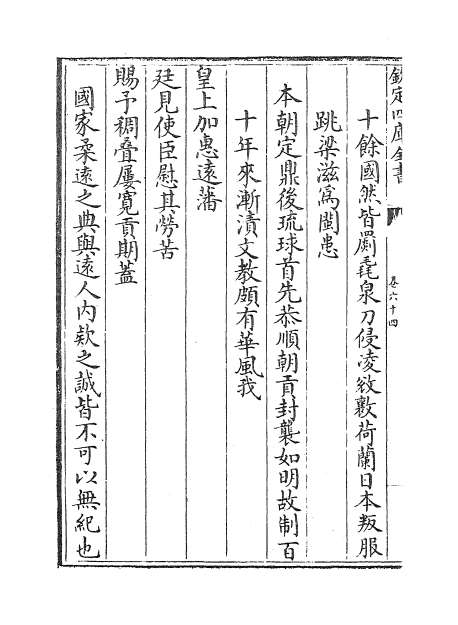 欽定四庫全書
卷六十四
十餘國然皆罽毳泉刀侵凌紋敷荷蘭日本叛服
跳梁滋為閩患
本朝定鼎後琉球首先恭順朝貢封襲如明故制百
十年來漸漬文教頗有華風我
皇上加惠遠藩
廷見使臣慰其勞苦
賜予稠疊屢寛貢期葢
國家柔遠之典與遠人内欵之誠皆不可以無紀也